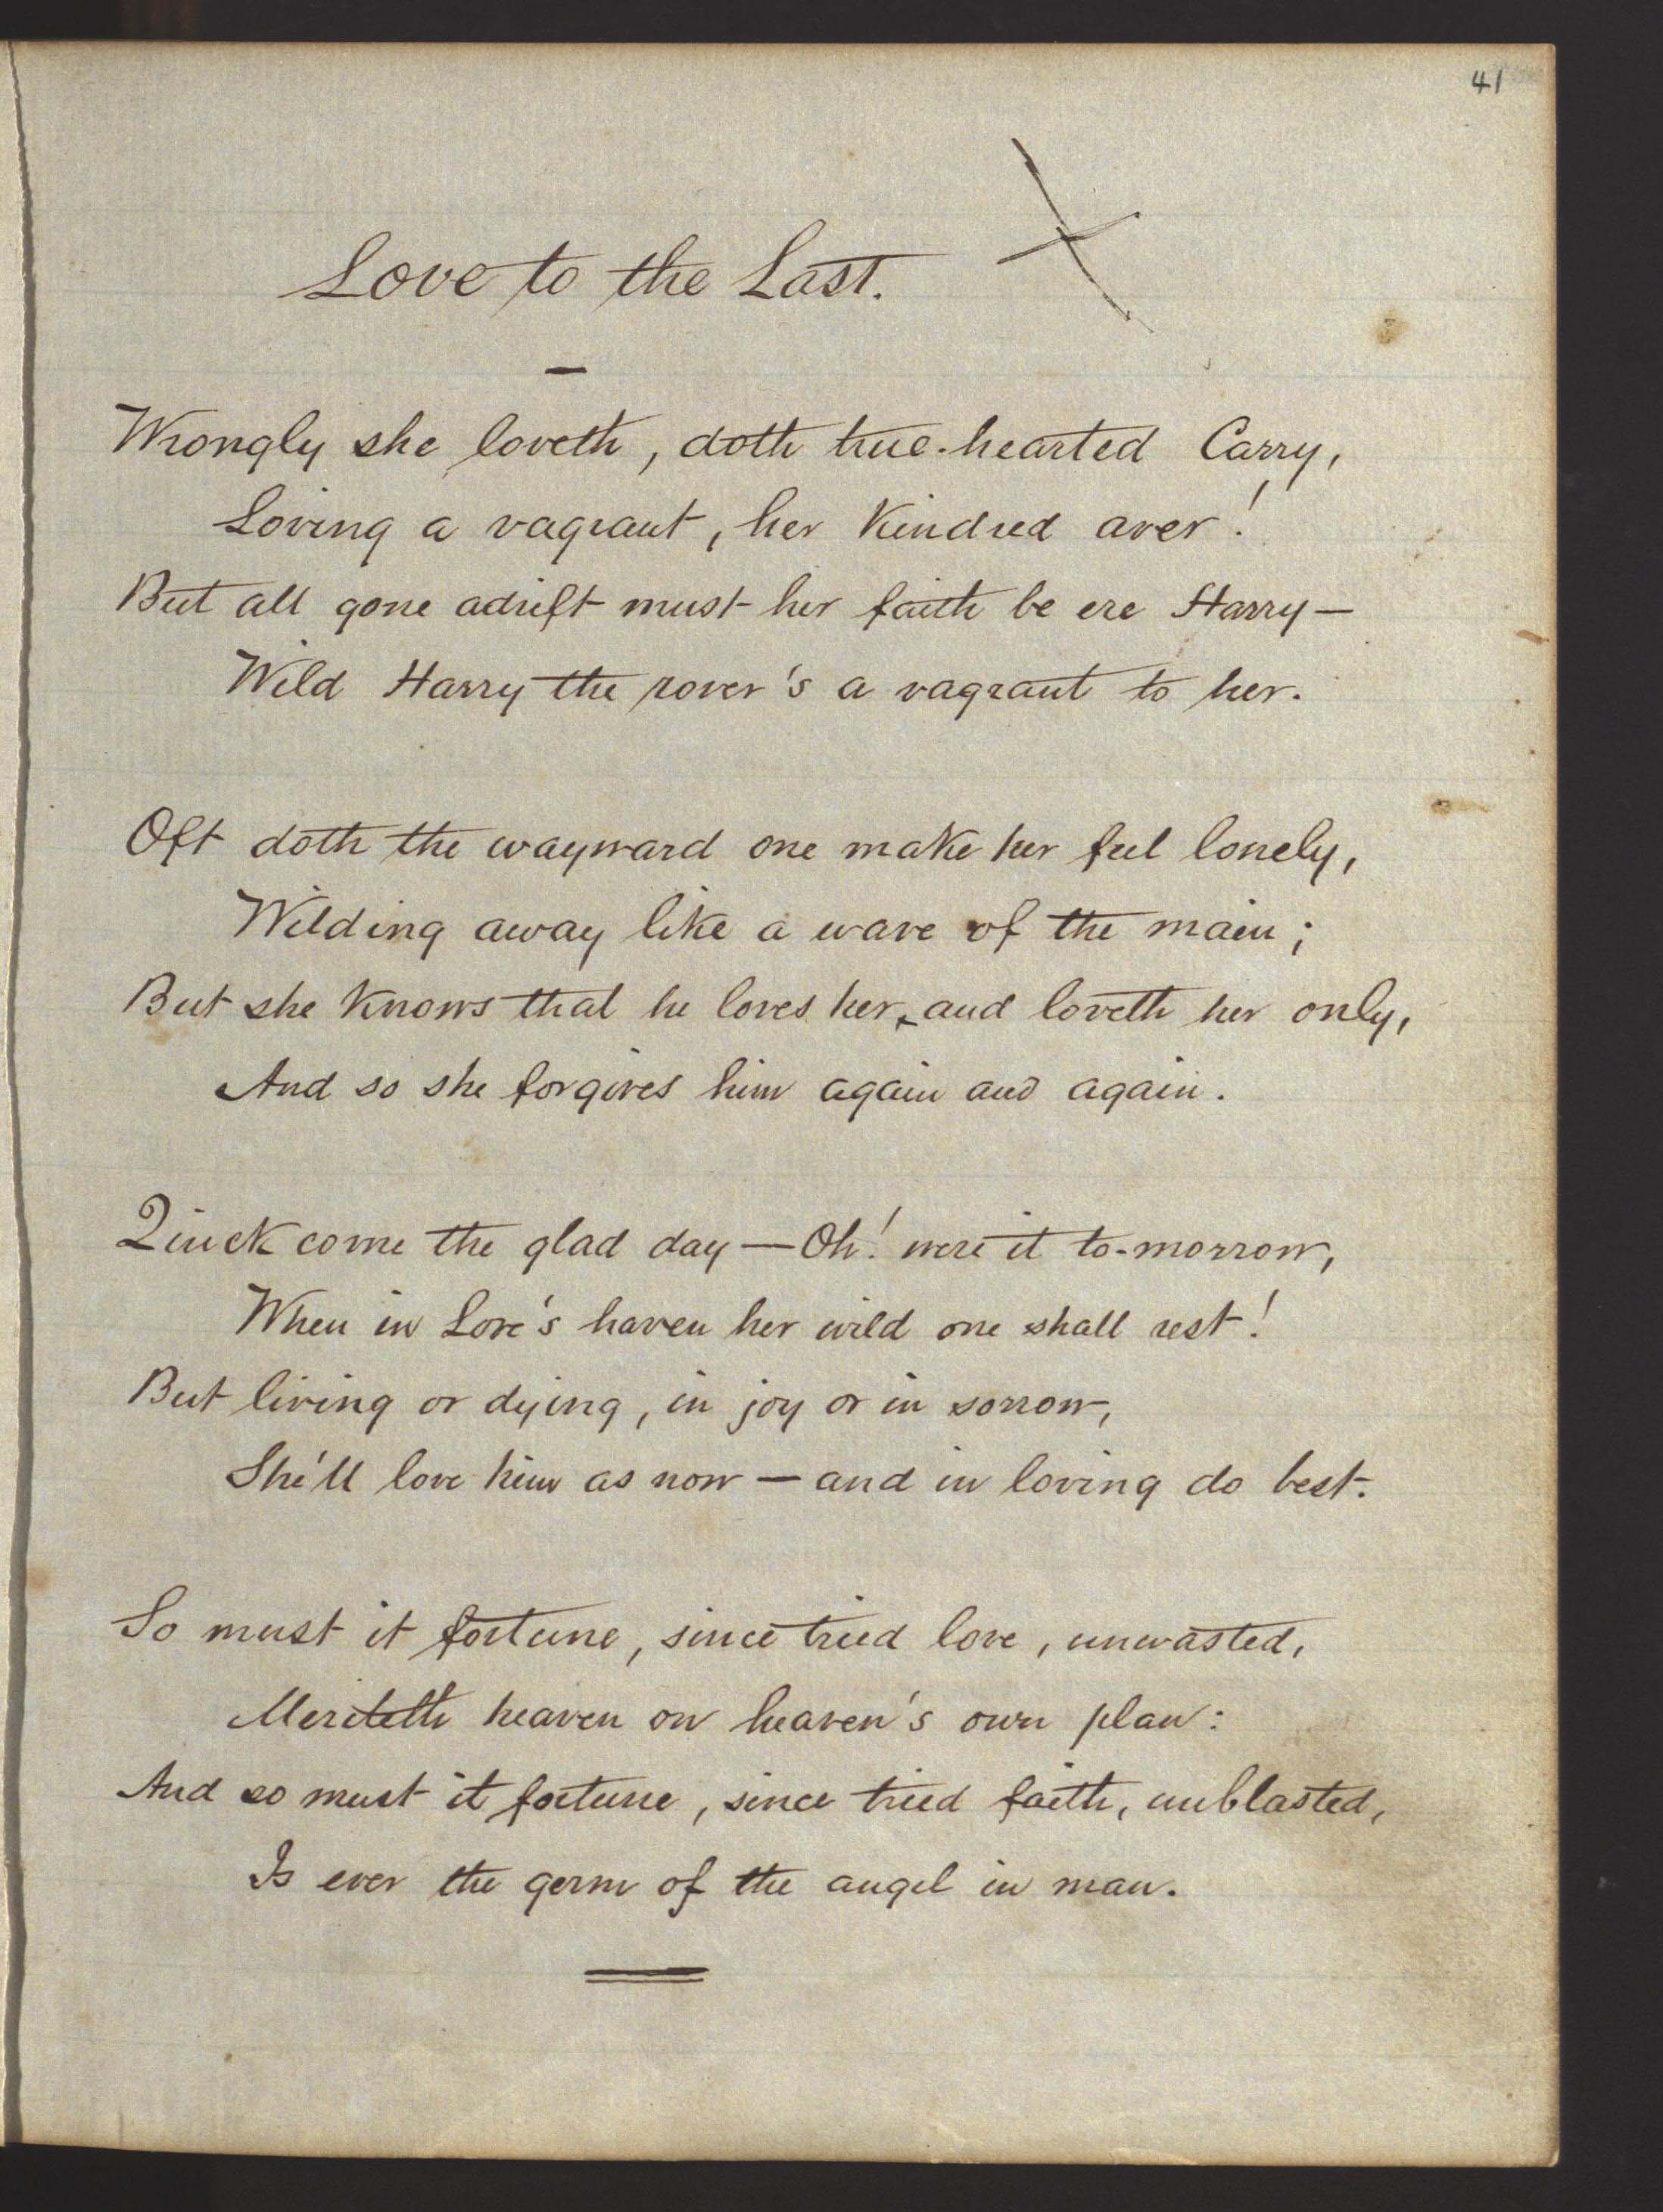 41
Love to the Last.
Wrongly she loveth, doth true-hearted Carry,
Loving a vagrant, her kindred aver!
But all gone adrift must her faith be ere Harry—
Wild Harry the rover's a vagrant to her.
Oft doth the wayward one make her feel lonely,
Wilding away like a wave of the main;
But she knows that he loves her, and loveth her only,
And so she forgives him again and again.
Quick come the glad day—Oh! were it to-morrow,
When in Love's haven her wild one shall rest!
But living or dying, in joy or in sorrow,
She'll love him as now—and in loving do best.
So must it fortune, since tried love, unwasted,
Meriteth heaven on heaven's own plan:
And so must it fortune, since tried faith, unblasted,
Is ever the germ of the angel in man.